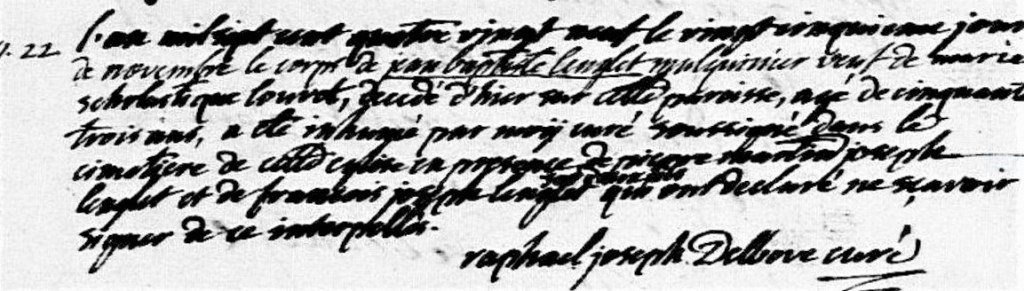 L'an mil sept cent quatre vingt neuf le vingt cinquieme jour
22 de novembre le corps de jean baptiste lenglet mulquinier veuf de marie
scholastique louvet, decedé d'hier sur cette paroisse, agé de cinquante
trois ans, a été inhumé par moÿ curé soussigné dans le
cimetiere de cette eglise en presence de pierre martin joseph
lenglet et de francois joseph lenglet ses deux fils qui ont declaré ne sçavoir
signer de ce interpellés.
raphael joseph Delbove curé